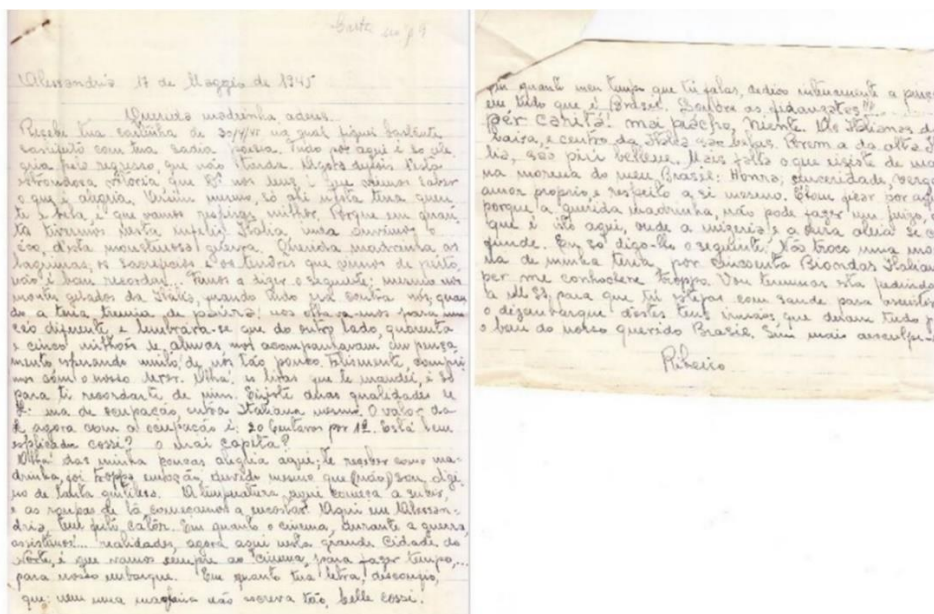 Carta
Alessandria 17 de Maggio de 1945
Querida madrinha adeus.
Recebe tua cartinha de 30/4/45 na qual fiquei bastante
contento com tua sadia Tudo por aqui é so ale
gria pelo regresso, que não tarda. Agora depois desta
estrondosa vitoria, que D. nos deu, é que vamos saber
o que é alegria. mesmo, só até nesta terra quen
te é bela, é que vamos respirar milhor. Porque em quan
ta tivemos nesta infeliz Italia, inda ouvimos o
éco, dista monstruosa guerra. Querida madrinha as
lagrimas, os sacreficios e os que vimos de perto,
não é bom recordar. Temos a dizer o seguinte: mesmo nos
montes gelados da Italia, quando tudo era contra nós, quan
do a terra, tremia de pavôra; nos para uma
diferente, e lembrara-se que do outro lado, quarenta
e cinco milhões de almas nos acompanhavam em pença
mento, esperando muito, de nós tão poucos. Felismente, compri
mos com o nosso dever. Olha! as liras que te mandei, é só
para ti recordante de mim. Existe duas qualidades de
£: uma de ocupação, outra Italiana mesmo. O valor da
£ agora com a ocupação é: 20 Centavos por 1£. Está bem
esplicado cossi? o mai capita?
Olha! das minha poucas alegria aqui; te receber como ma
drinha, foi troppa emoção, duvido mesmo que (não) sou digi
no de tanta gintileza. A temperatura, aqui começa a subir,
e as roupas de lã, começamos a encostar. Aqui em Alessan-
dria, tem feito calôr. Em quanto o cinema, durante a guerra,
assistimos... realidades, agora aqui nesta grande Cidade do
Norte, é que vamos sempre ao "Cinema, para fazer tempo,...
para nosso embarque. Em quanto tua letra, desconfio,
que: nem uma maquina não escreva tão, belle cossi.
em quanto meu tempo que tú falas, dedico
em tudo que é Brasil. Sombra as fidanzatas!!!
per carita! mai piácho, niente. As Italianas da
baixa, e centro da Italia são belas. Porem a da alta Itá
lia, são piú belleve. Mais falta o que existe de
na morena do meu Brasil: Honra, sinceridade, vergo
amor proprio, e respeito a si mesmo. pesar por
porque a querida madrinha, não pode fazer um juizo, do
que é isto aqui, onde a miseria e a se
funde. Eu so digo-lhe o seguinte: Não troco uma more
na de minha terra por cincoenta Biondas Italianas
per me conhochere troppo. Vou terminar esta pedindo
a D. para que tú estejas com saude para assistires
o desembarque destes teus irmãos que deram tudo para
o bem do nosso querido Brasil. Sem mais
Ribeiro